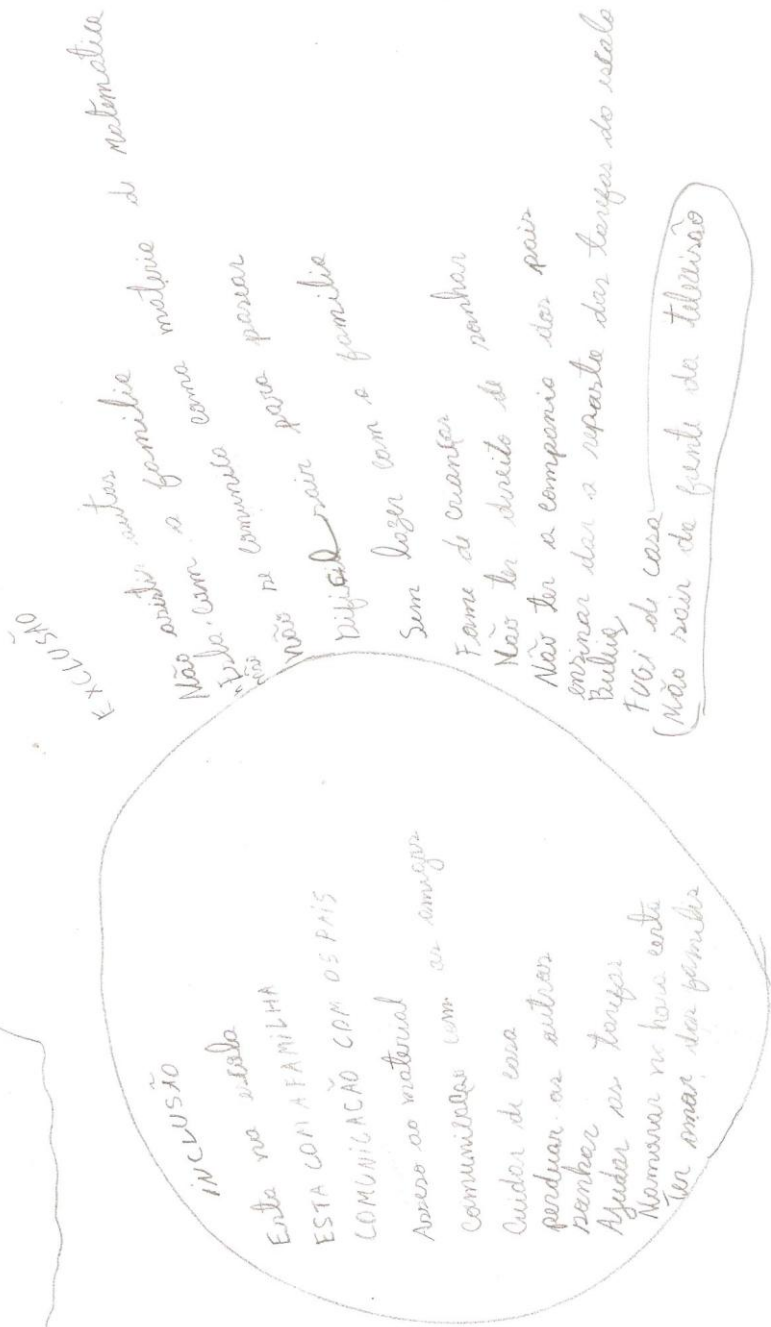 INCLUSÃO
Esta na escola
ESTA COM A FAMILHA
COMUNICAÇÃO COM OS PAIS
Acesso ao material
comunicação com os amigos
Cuidar de casa
perduar os outros
sonhar
Ajudar as tarefas
Namorar na hora certa
Ter amar das familia
EXCLUSÃO
Não asistir
Esta com a familia
não
não se comunica como materia de matematica
Dificil sair para pasear
Sem lazer com a familia
Fome de crianças
Não ter direito de sonhar
Não ter a compania dos pais
ensinar dar a reposta das tarefas da escola
Bulling
FUGI de casa
Não sair da frente da televisão